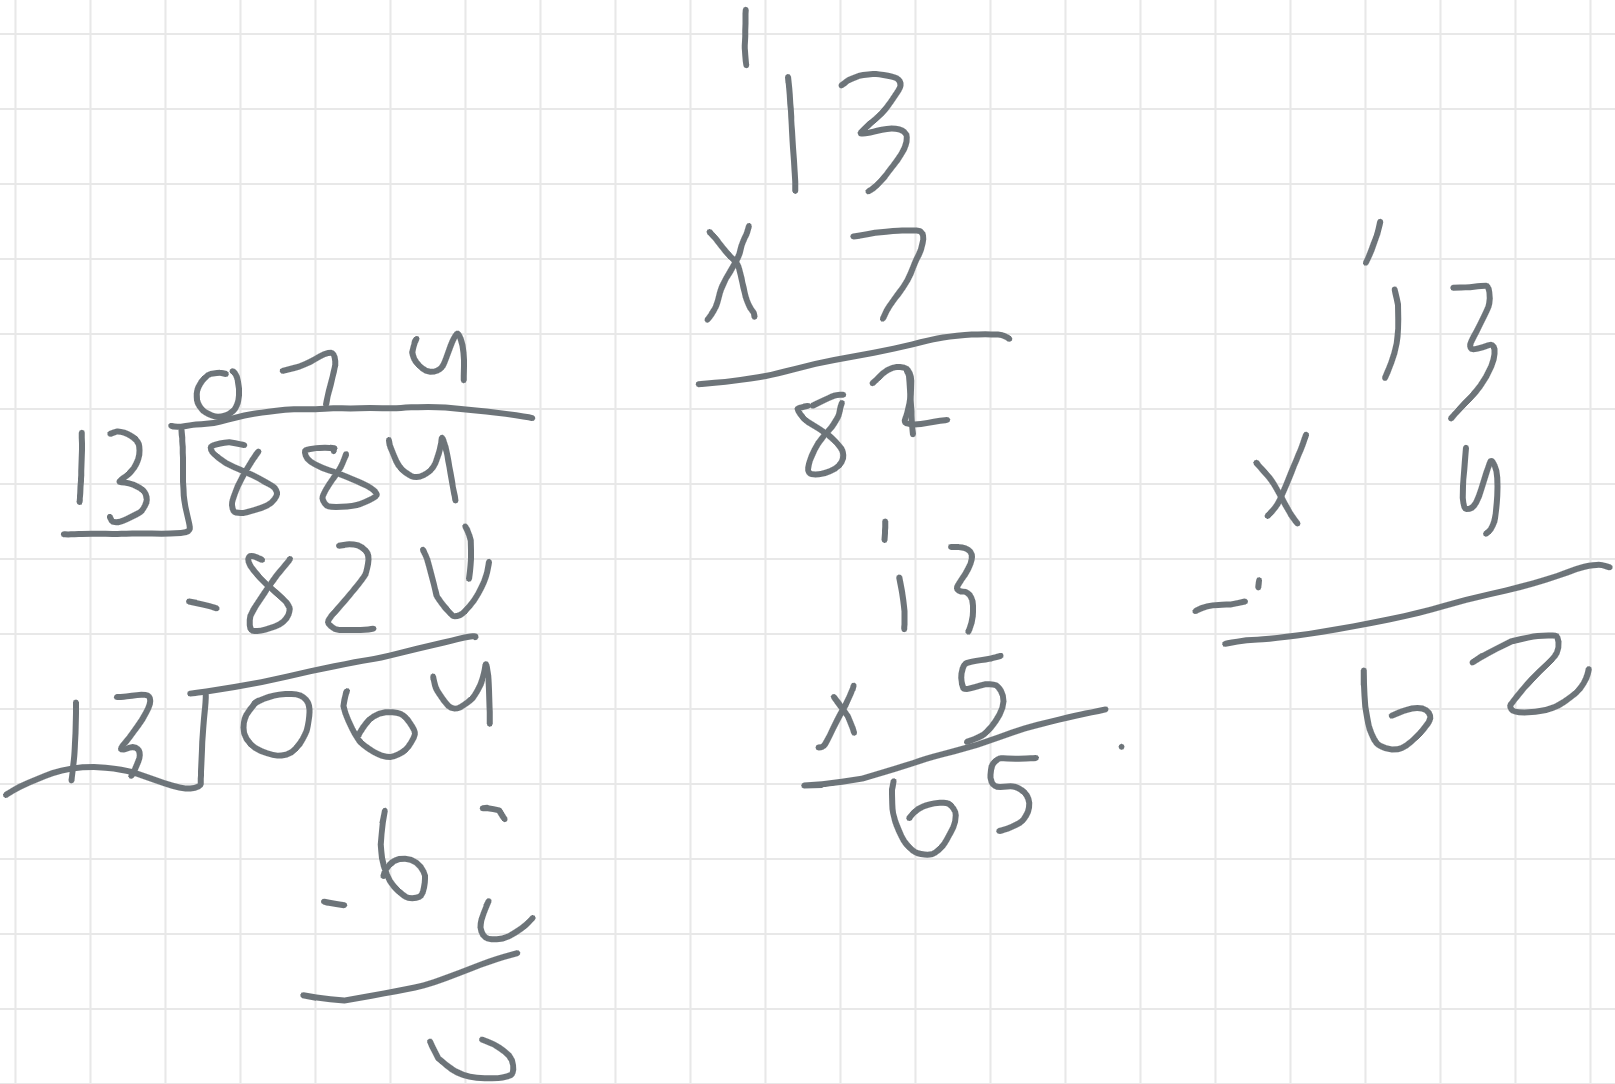 074
13 884
- 82
13 064
- 6
1
13
X 7
82
1
13
x 5
65
1
13
X 4
62